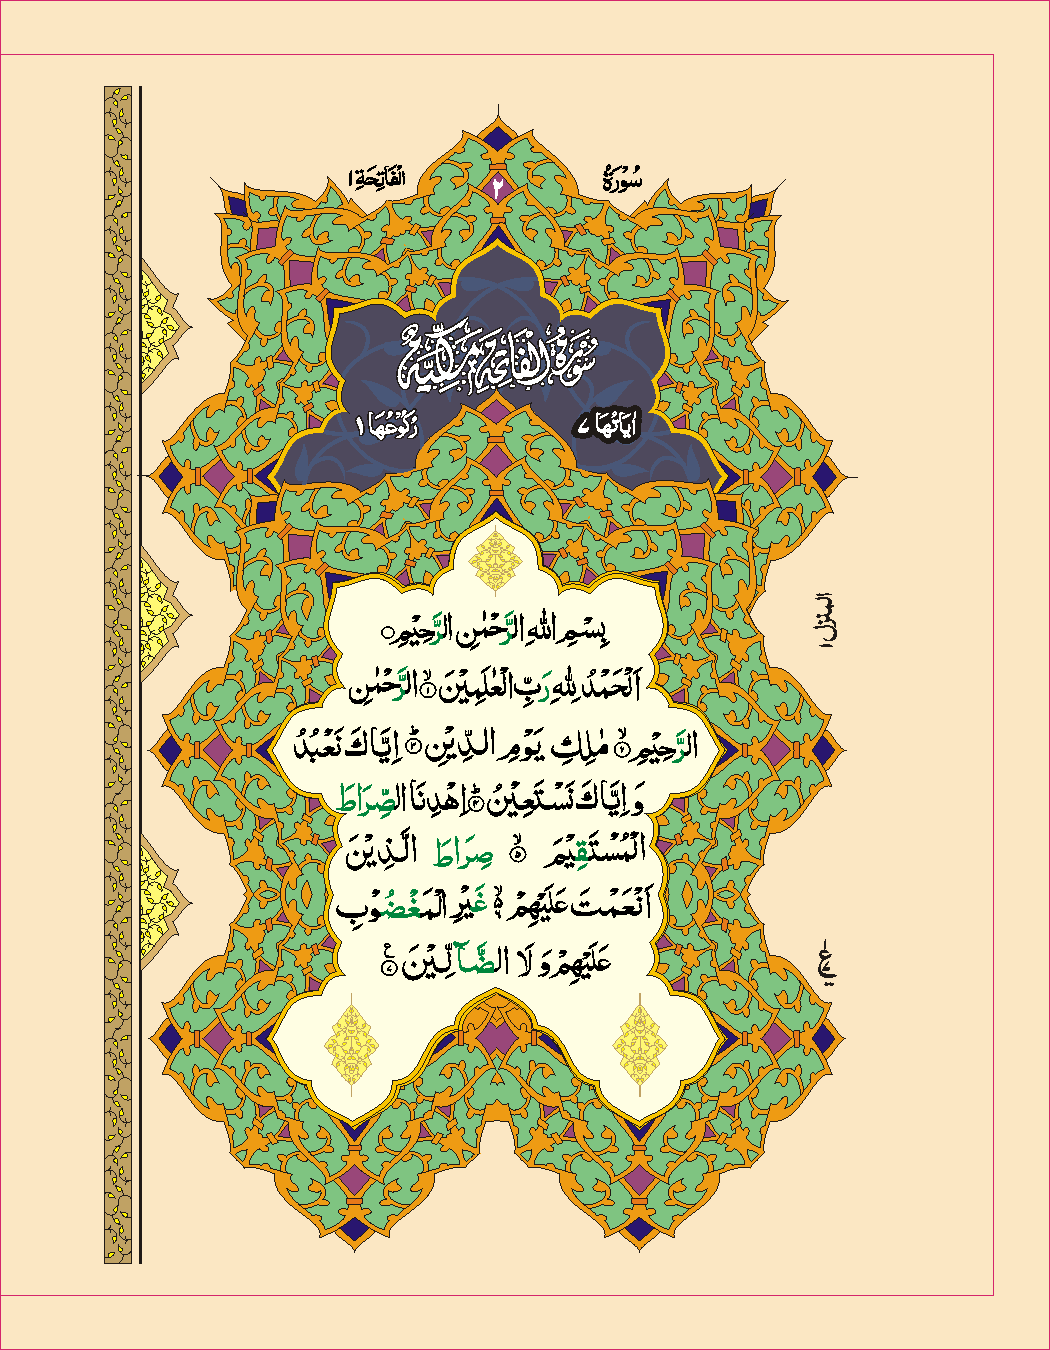 سُوْرَةُ
٢
الْفَاتِحَةِ ١
سُوْرَةُ الْفَاتِحَةِ مَكِّيَّةٌ
اٰيَاتُهَا ٧
رُكُوْعُهَا ١
بِسْمِ اللهِ الرَّحْمٰنِ الرَّحِيْمِ ○
اَلْحَمْدُ لِلّٰهِ رَبِّ الْعٰلَمِيْنَ ۙ﴿١﴾ الرَّحْمٰنِ
الرَّحِيْمِ ۙ﴿٢﴾ مٰلِكِ يَوْمِ الدِّيْنِ ؕ﴿٣﴾ اِيَّاكَ نَعْبُدُ
وَ اِيَّاكَ نَسْتَعِيْنُ ؕ﴿٤﴾ اِهْدِنَا الصِّرَاطَ
الْمُسْتَقِيْمَ ۙ﴿٥﴾ صِرَاطَ الَّذِيْنَ
اَنْعَمْتَ عَلَيْهِمْ ۙ۬ غَيْرِ الْمَغْضُوْبِ
عَلَيْهِمْ وَ لَا الضَّآلِّيْنَ ﴿٧﴾ع
المنزل ١
ع